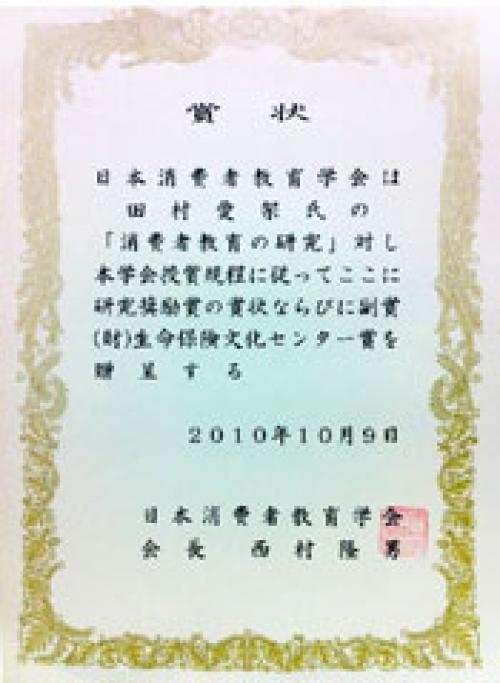 賞状
日本消費者教育学会は
田村愛架氏の
「消費者教育の研究」対し
本学会授賞規程に従ってここに
研究奨励賞の賞状ならびに副賞
(財)生命保険文化センター賞を
贈呈する
2010年10月9日
日本消費者教育学会
会長 西村隆男